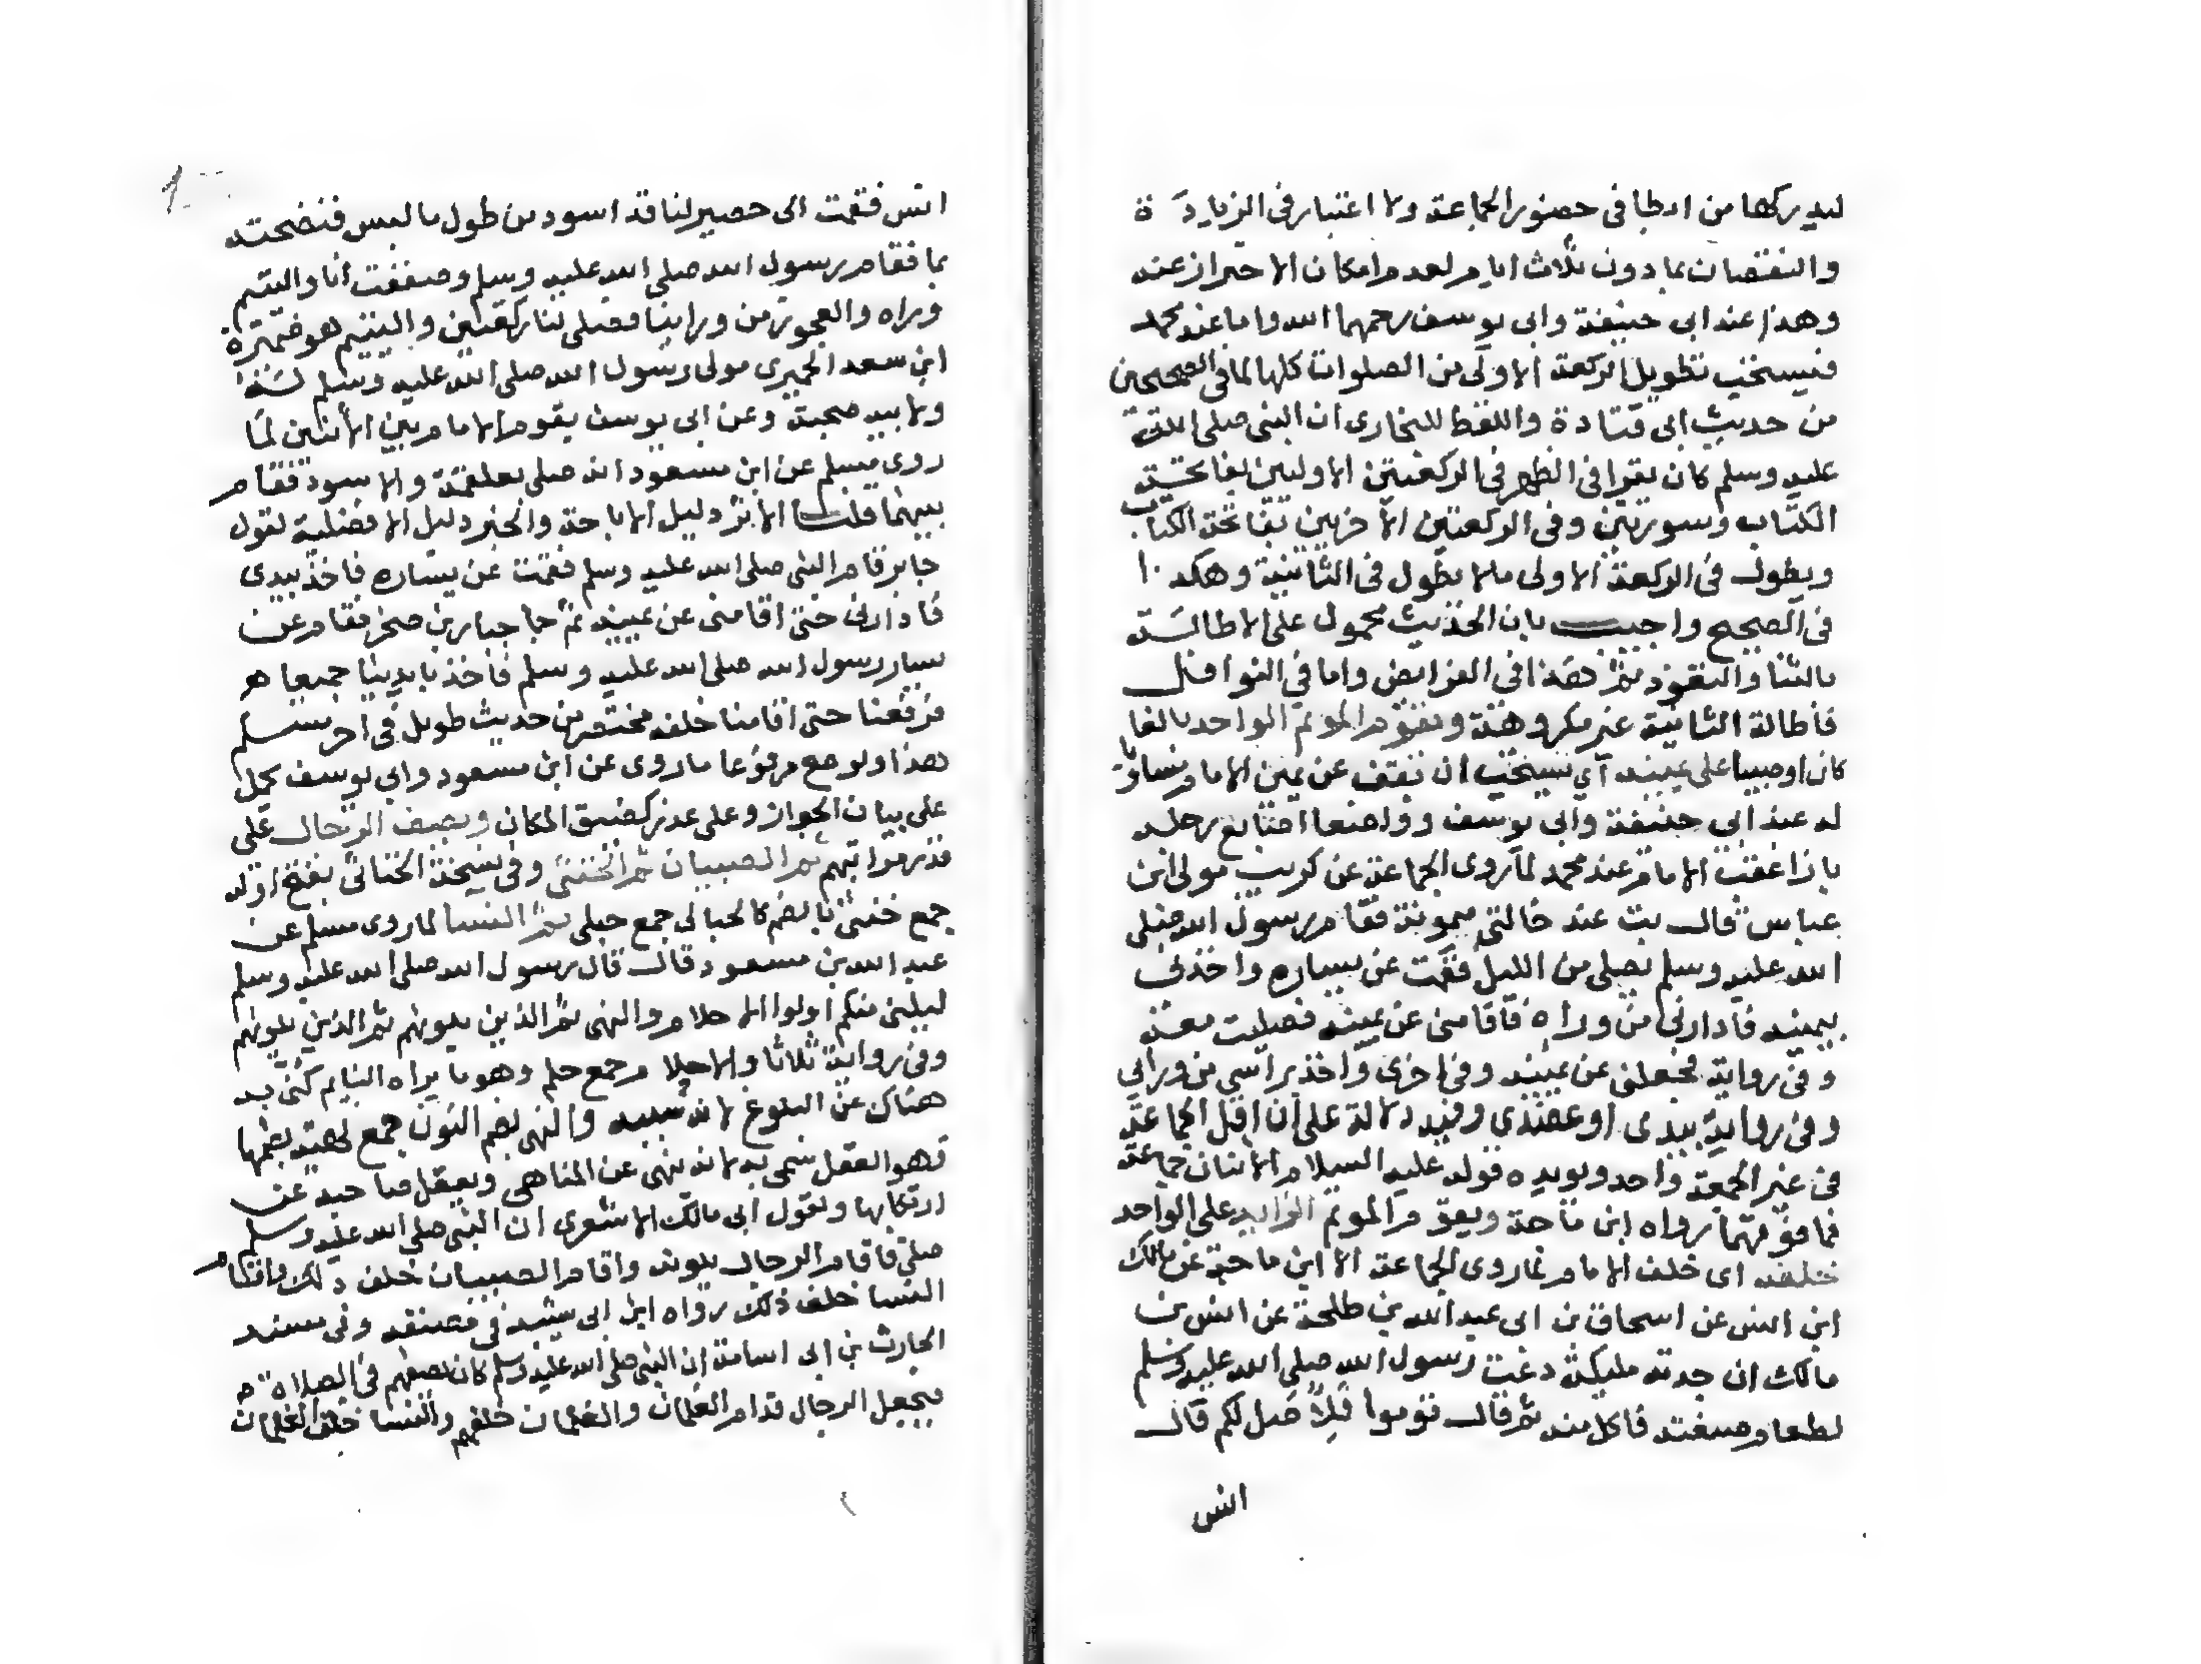 ليدركها من ابطا في حضور الجماعة ولا اعتبار في الزيادة
والنقصان بما دون ثلاث ايام لعدم امكان الاحتراز عنه
وهذا عند ابي حنيفة وابي يوسف رحمهما الله واما عند محمد
فيستحب تطويل الركعة الاولى من الصلوات كلها لما في الصحيحين
من حديث ابي قتادة واللفظ للبخاري ان النبي صلى الله
عليه وسلم كان يقرا في الظهر في الركعتين الاوليين بفاتحة
الكتاب وسورتين وفي الركعتين الاخريين بفاتحة الكتاب
ويطول في الركعة الاولى مالا يطول في الثانية وهكذا
في الصبح واجيب بان الحديث محمول على الاطالة
بالثنا والتعوذ ثم هذا في الفرايض واما في النوافل
فاطالة الثانية غير مكروهة ويقوم الموتم الواحد بالغا
كان او صبيا على يمينه اي يستحب ان يقف عن يمين الامام مساويا
له عند ابي حنيفة وابي يوسف وواضعا اصابع رجله
بازا عقب الامام عند محمد لما روى الجماعة عن كريب مولى ابن
عباس قال بت عند خالتي ميمونة فقام رسول الله صلى
الله عليه وسلم يصلي من الليل فقمت عن يساره واخذني
بيمينه فادارني من وراه فاقامني عن يمينه فصليت معه
وفي رواية فجعلني عن يمينه وفي اخرى واخذ براسي من وراي
وفي رواية بيدي او عضدي وفيه دلالة على ان اقل الجماعة
في غير الجمعة واحد ويويده قوله عليه السلام الاثنان جماعة
فما فوقهما رواه ابن ماجة ويقوم الموتم الزايد على الواحد
خلفه اي خلف الامام لما روى الجماعة الا ابن ماجة عن مالك
ابن انس عن اسحاق بن ابي عبد الله بن طلحة عن انس بن
مالك ان جدته مليكة دعت رسول الله صلى الله عليه وسلم
لطعام صنعته فاكل منه ثم قال قوموا فلاصل لكم قال
انس
انس فقمت الى حصير لنا قد اسود من طول ما لبس فنضحته
بما فقام رسول الله صلى الله عليه وسلم وصففت انا واليتيم
وراه والعجوز من وراينا فصلى لنا ركعتين واليتيم هو ضميرة
ابن سعد الحميري مولى رسول الله صلى الله عليه وسلم له
ولابيه صحبة وعن ابي يوسف يقوم الامام بين الاثنين لما
روى مسلم عن ابن مسعود انه صلى بعلقمة والاسود فقام
بينهما قلنا الاثر دليل الاباحة والخبر دليل الافضلية لقول
جابر قام النبي صلى الله عليه وسلم فقمت عن يساره فاخذ بيدي
فادارني حتى اقامني عن يمينه ثم جا جبار بن صخر فقام عن
يسار رسول الله صلى الله عليه وسلم فاخذ بايدينا جميعا
فرفعنا حتى اقامنا خلفه مختصر من حديث طويل في اخر مسلم
هذا ولو صح مرفوعا ما روى عن ابن مسعود وابي يوسف حمل
على بيان الجواز وعلى عذر كضيق المكان ويصف الرجال على
قدر مراتبهم ثم الصبيان ثم الخنثى وفي نسخة الخناثى بفتح اوله
جمع خنثى بالضم كالحبالى جمع حبلى ثم النسا لما روى مسلم عن
عبد الله بن مسعود قال قال رسول الله صلى الله عليه وسلم
ليليني منكم اولوا الاحلام والنهى ثم الذين يلونهم ثم الذين يلونهم
وفي رواية ثلاثا والاحلام جمع حلم وهو ما يراه النايم كنى به
هناك عن البلوغ لانه سببه والنهى بضم النون جمع نهية بضمها
وهو العقل سمي به لانه ينهى عن المناهي ويعقل صاحبه عن
ارتكابها ولقول ابي مالك الاشعري ان النبي صلى الله عليه وسلم
صلى فاقام الرجال يلونه واقام الصبيان خلف ذلك واقام
النسا خلف ذلك رواه ابن ابي شيبة في مصنفه وفي مسند
الحارث بن ابي اسامة ان النبي صلى الله عليه وسلم كان يصفهم في الصلاة
فيجعل الرجال قدام الغلمان والغلمان خلفهم والنسا خلف الغلمان